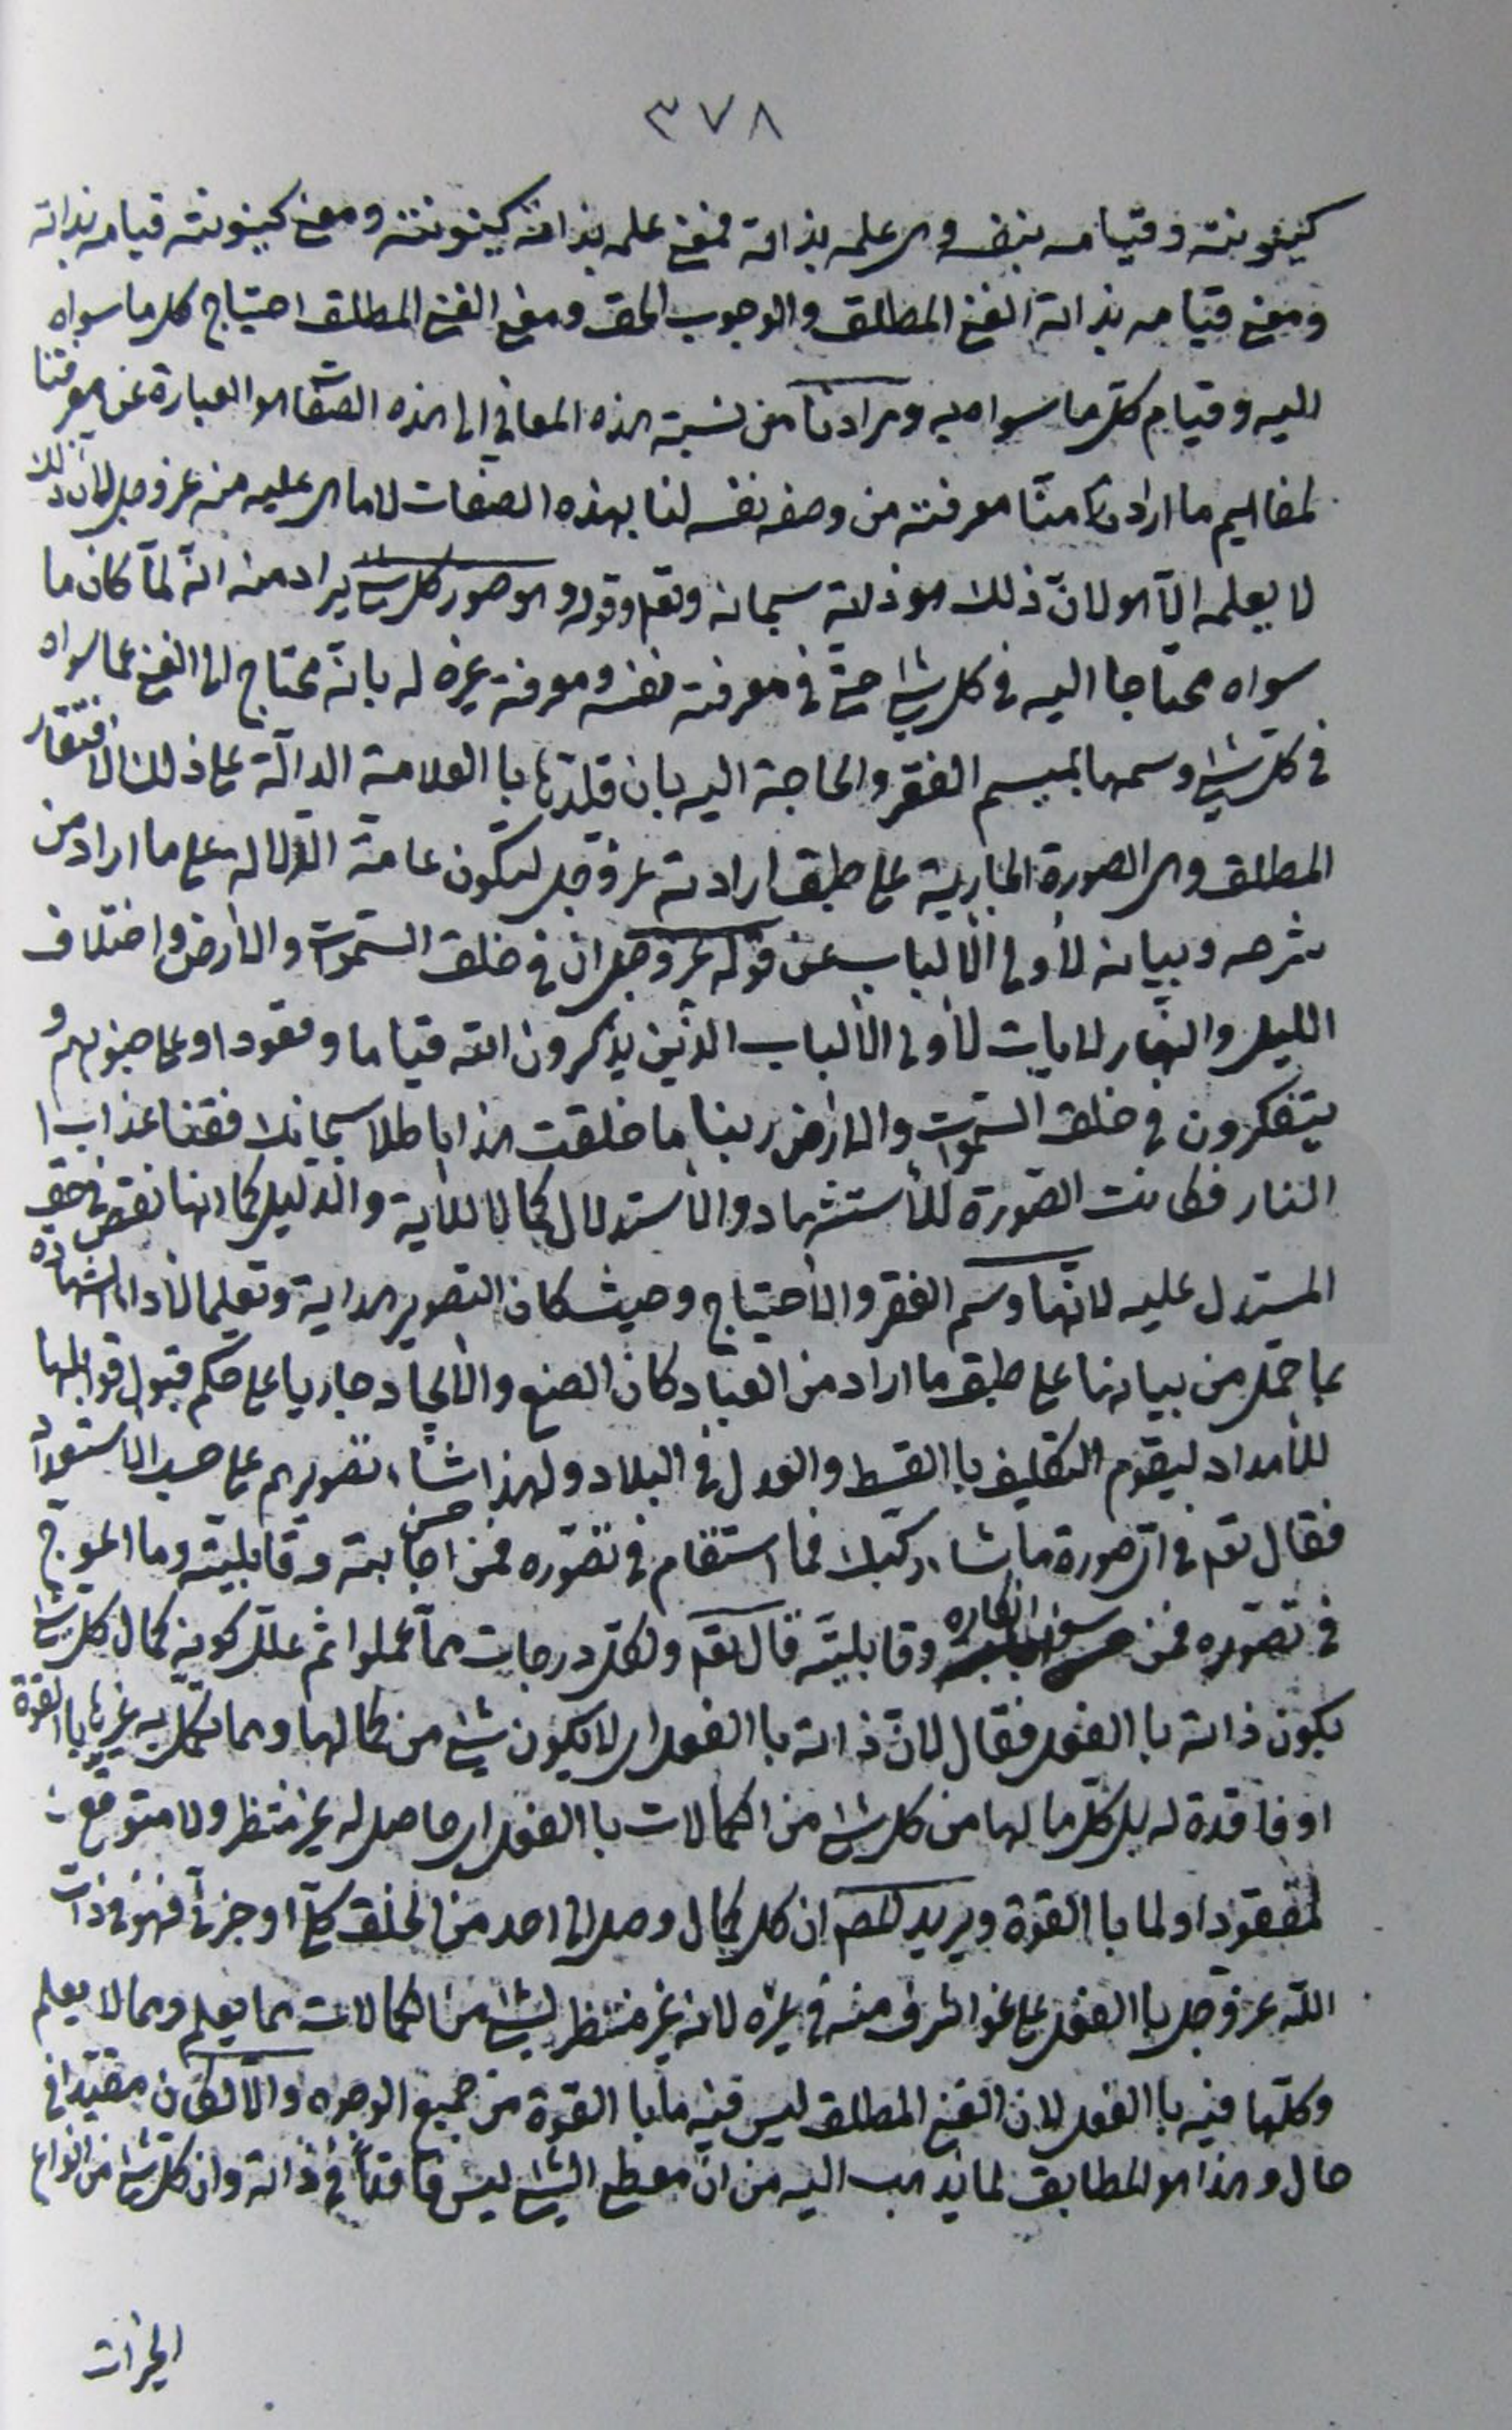 ٣٧٨
كينونته وقيامه بنفسه وهى علمه بذاته فمعنى علمه بذاته كينونته ومعنى كينونته قيامه بذاته
ومعنى قيامه بذاته الغنى المطلق والوجوب الحق ومعنى الغنى المطلق احتياج كل ما سواه
اليه وقيام كل ما سواه به ومرادنا من نسبة هذه المعانى الى هذه الصفات هو العبارة عن معرفتنا
لمفاهيم ما اراد منّا معرفته من وصفه نفسه لنا بهذه الصفات لا ما هى عليه منه عز وجل لان ذلك
لا يعلمه الّا هو لانّ ذلك هو ذاته سبحانه وتعم وقوله وهو صور كل شئ يراد منه انّه لمّا كان ما
سواه محتاجا اليه فى كل شئ حتى فى معرفته نفسه ومعرفة غيره له بانّه محتاج الى الغنى عما سواه
فى كل شئ وسمها بميسم الفقر والحاجة اليه بان قلدها باالعلامة الدالّة على ذلك الافتقار
المطلق وهى الصورة الجارية على طبق ارادته عز وجل لتكون عامة الدّلالة على ما اراد من
شرحه وبيانه لأولى الألباب عن قوله عز وجل ان فى خلق السّموات والأرض واختلاف
الليل والنهار لايات لأولى الألباب الذين يذكرون الله قياما وقعودا وعلى جنوبهم و
يتفكرون فى خلق السّموات والارض ربنا ما خلقت هذا باطلا سبحانك فقنا عذاب ا
النار فكانت الصّورة للأستشهاد والأستدلال كمالا للأية والدليل كما انها نقص فى حق
المستدل عليه لانّها وسم الفقر والأحتياج وحيث كان التصوير هداية وتعليما لأداء الشهادة
بما حمل من بيانها على طبق ما اراد من العباد كان الصنع والأيجاد جاريا على حكم قبول قوابلها
للأمداد ليقوم التكليف باالقسط والعدل فى البلاد ولهذا شاء تصويرهم على حسب الاستعداد
فقال تعم فى اىّ صورة ما شاء ركبك فما استقام فى تصوّره فمن حسن اجابته وقابليّته وما اعوج
فى تصوّره فمن سوء انكاره وقابليّته قال تعم ولكل درجات ممّا عملوا ثم علل كونه كمال كل شئ
بكون ذاته باالفعل فقال لانّ ذاته باالفعل اى لا يكون شئ من كمالها ومما تكمّل به غيرها باالقوّة
او فاقدة له بل كل ما لها من كل شئ من الكمالات باالفعل اى حاصل له غير منتظر ولا متوقع
لمفقود او لما باالقوة ويريد المص ان كل كمال وصل الى احد من الخلق كلّى او جزئى فهو فى ذات
الله عز وجل باالفعل على نحو اشرف منه فى غيره لانه غير منتظر لشئ من الكمالات مما يعلم ومما لا يعلم
وكلّها فيه باالفعل لان الغنى المطلق ليس فيه ما باالقوة من جميع الوجوه والّا لكان مقيّدا فى
حال وهذا هو المطابق لما يذهب اليه من انّ معطى الشئ ليس فاقداً فى ذاته وان كل شئ من انواع
الخيرات